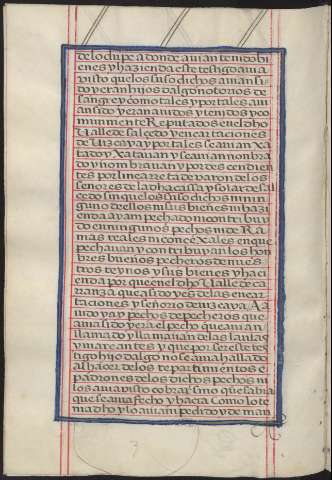 de lo chipe a donde avian tenido bi
enes y hazienda este testigo avia
visto que los suso dichos avian si
do y eran hijos dalgo notorios de
sangre y como tales y por tales avi
an sido y eran avidos y tenidos y co
munmente Reputados en el dho
Valle de salcedo y encartaciones
de Vizcaya y por tales se avian Xa
tado y Xatavan y se avian nonbra
do y nombravan y por des cendien
tes por linea rreta de varon de los
señores de la dha cassa y solar de sal
cedo sin que los suso dichos ni nin
guno dellos ni sus bienes ni hazi
enda ayan pechado ni contribuy
do en ningunos pechos ni de Ra
mas reales ni conce Xales en que
pechavan y contribuyan los hon
bres buenos pecheros de nues
tros reynos y sus bienes y haci
enda por que en el dho Valle de ca
rranza que asido y es de las encar
taciones y señorio de vizcaya A a
vido y ay pechos de pecheros que
an asido y era el pecho que avian
llamado y llamavan de las fanlas
y mareantes y que por ser el tes
tigo hijo dalgo no se avia hallado
al hacer de los repartimientos e
padrones de los dichos pechos ni
los avia visto cobrar sino que sabia
que se avia fecho y hacia como lo te
nia dho y lo avian pedido y de man